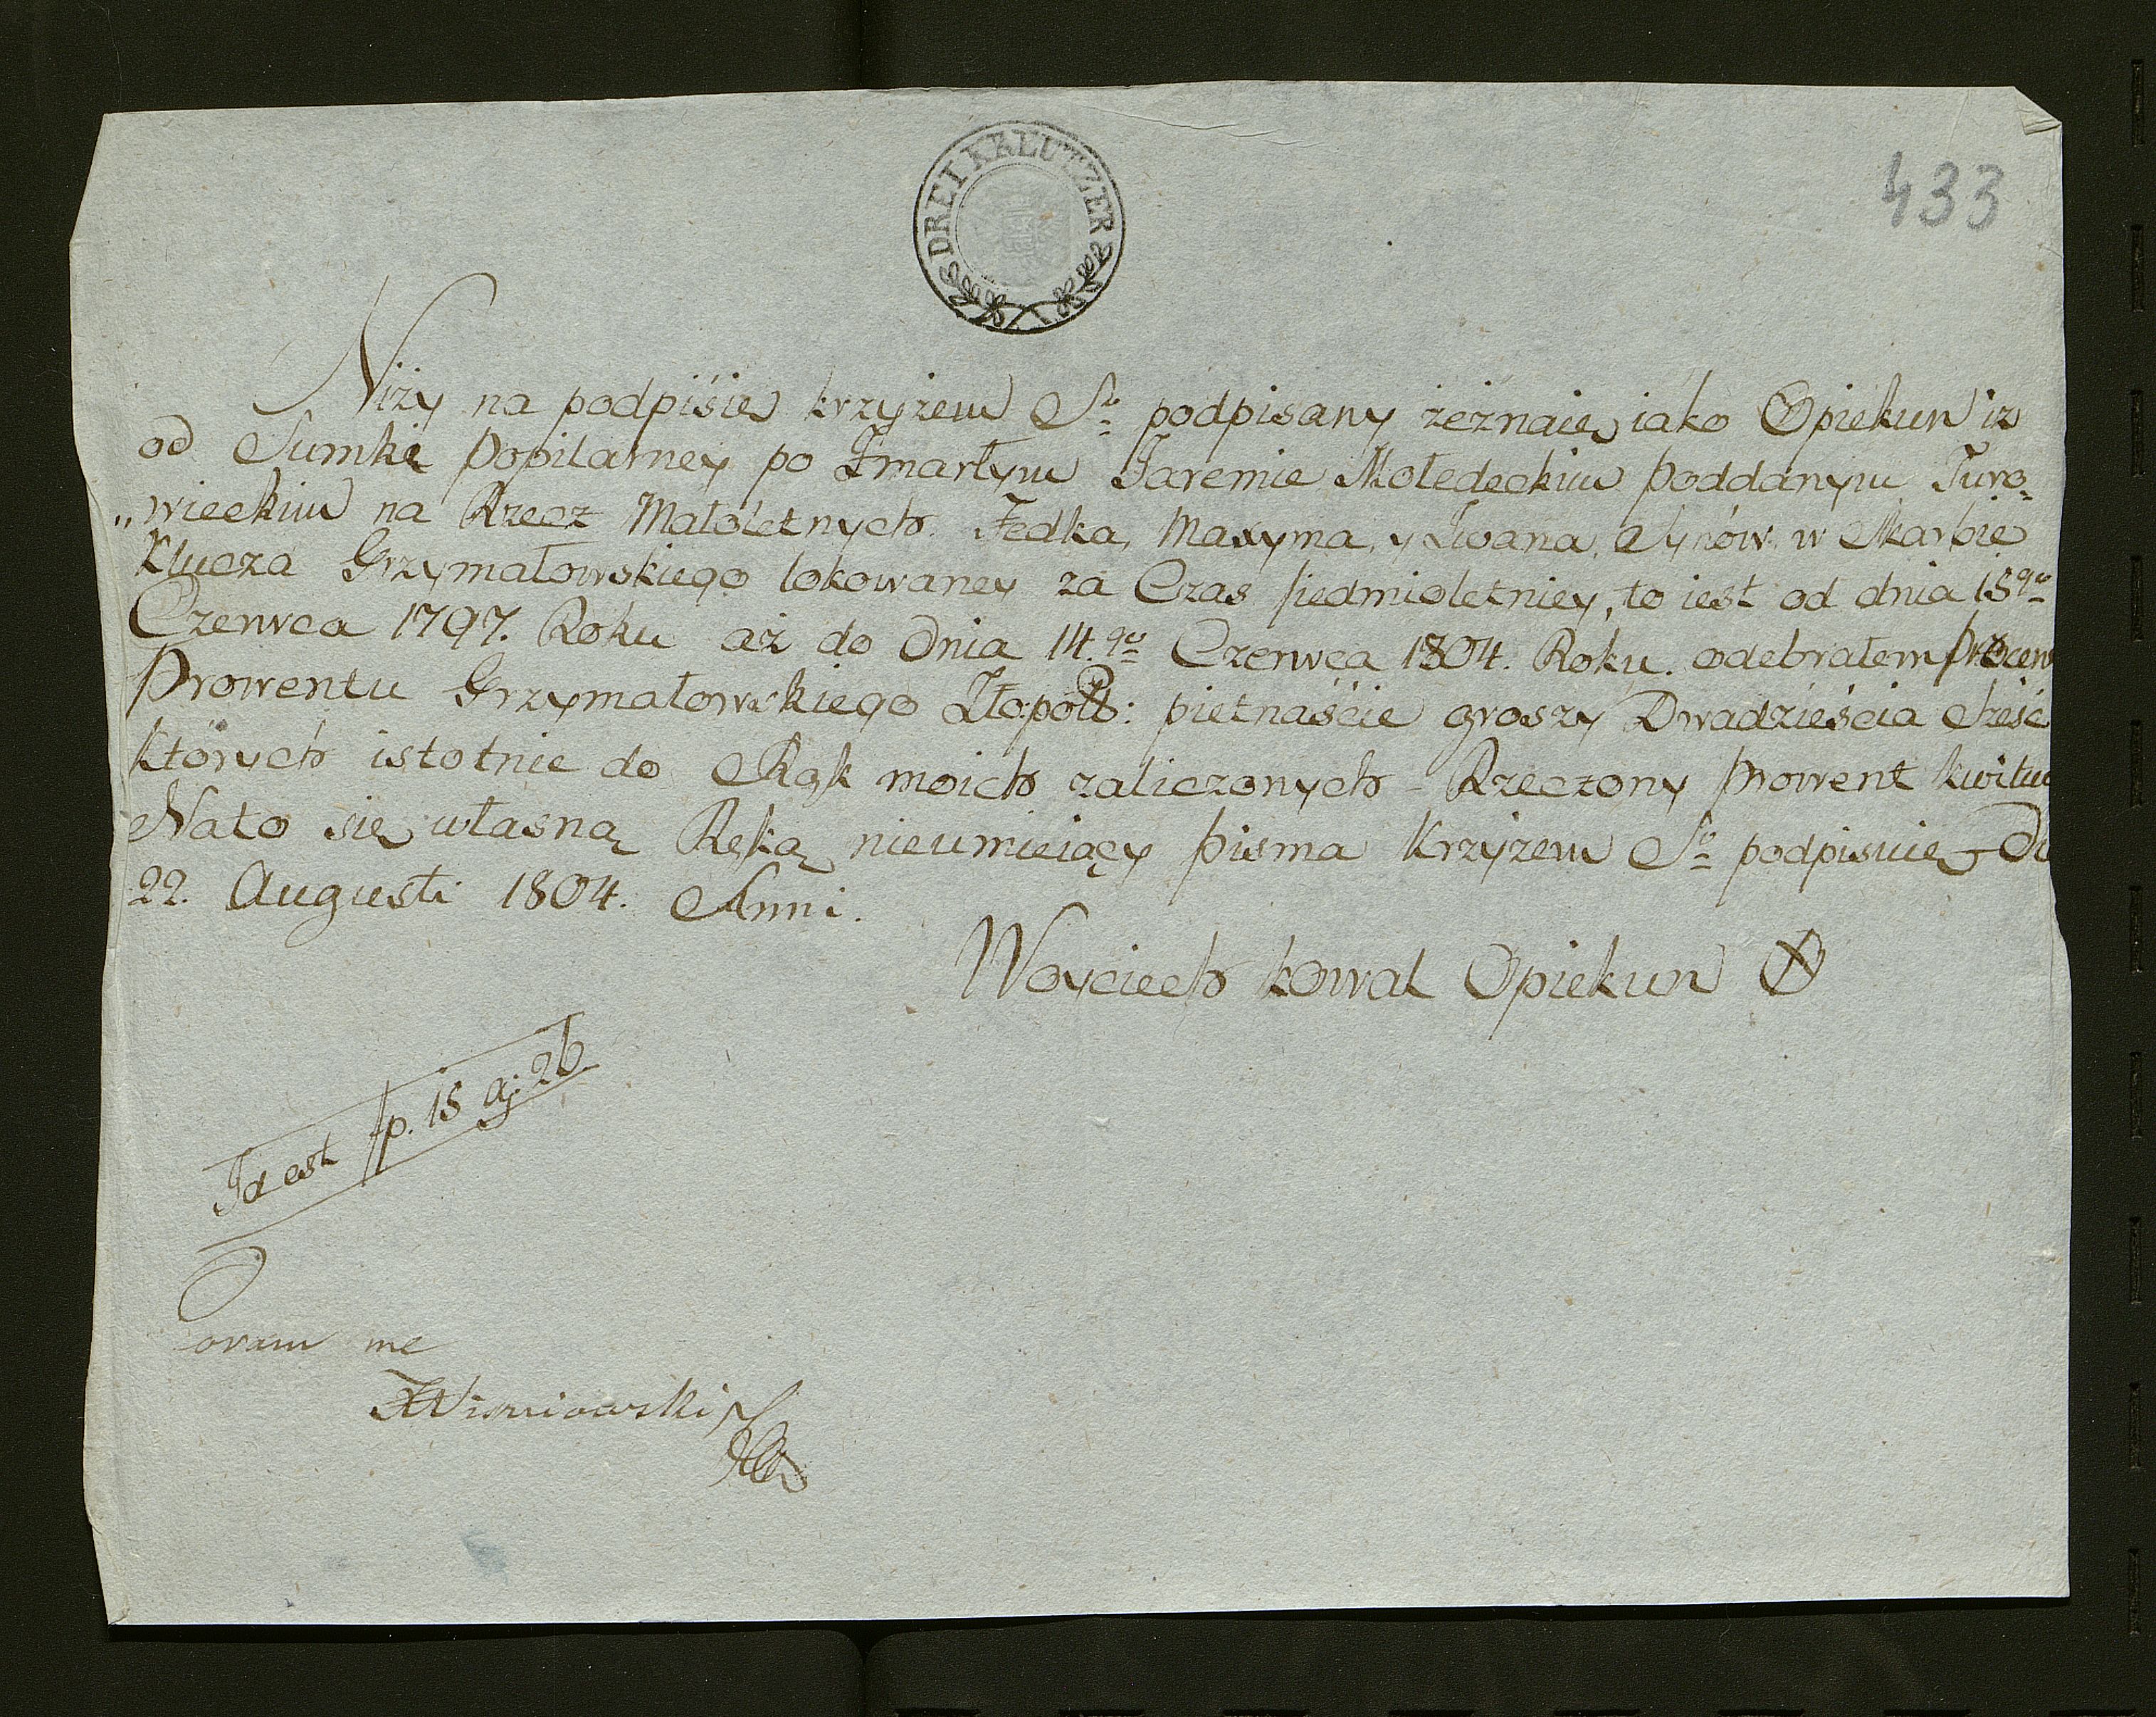 DREI KREUTZER
433
Niży na podpisie krzyżem S: podpisany zeznaię iako Opiekun iz
od Sumki Popilarney po Zmarłym Jaremie Mołedeckim Poddanym Turo
„wieckim na Rzecz Małoletnych Fedka, Maxyma, y Iwana, Synów w Skarbie
Klucza Grzymałowskiego lokowaney za Czas siedmioletniey, to iest od dnia 15go
Czerwca 1797. Roku aż do Dnia 14.go Czerwca 1804. Roku. odebrałem Procen
Prowentu Grzymałowskiego Zło: pols: piętnaście groszy Dwadzieścia sześć
których istotnie do Rąk moich zaliczonych - Rzeczony Prowent kwituę
Nato się własną Ręką nieumieiący pisma Krzyżem S: podpisuię - D
22. Augusti 1804. Anni.
Woyciech kowal Opiekun X
Id est fp. 15 g: 26
Coram me
Wisniowski